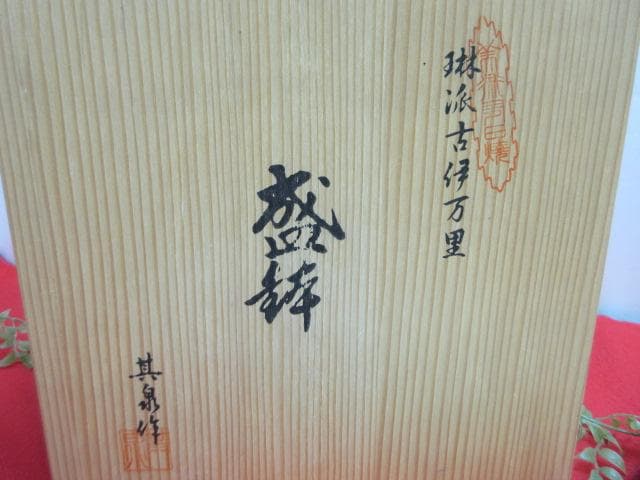 琳派古伊万里
盛鉢
其泉作